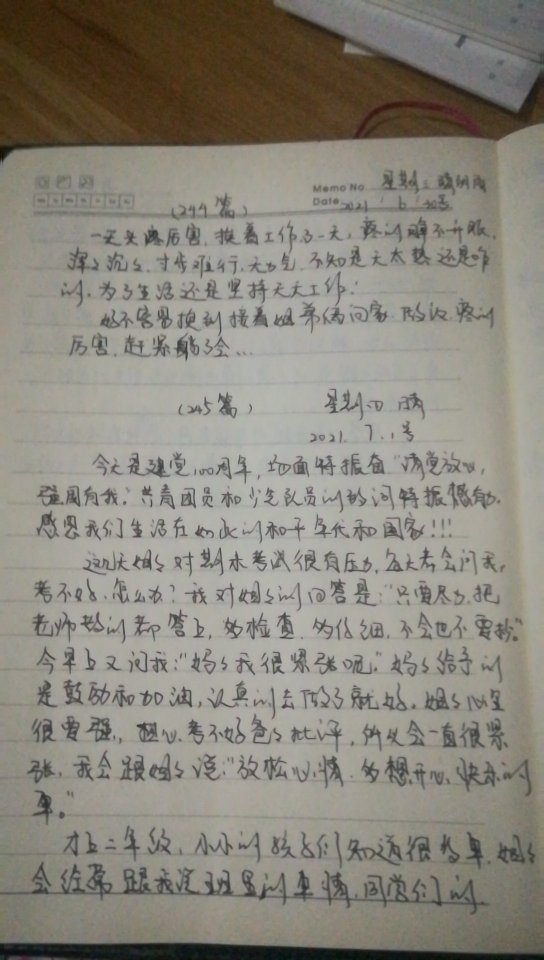 Memo No. 星期三 晴
Date 2021 / 6 / 30号
(244篇)
一天头疼厉害,挨着工作了一天,疼的睁不开眼,
深深沉沉,寸步难行,无力气,不知是天太热还是咋
的,为了生活还是坚持天天工作!
好不容易挨到接着姐弟俩回家,疼的
厉害,赶紧躺了会…
(245篇) 星期四 晴
2021. 7. 1号
今天是建党100周年,场面特振奋“请党放心,
强国有我”共青团员和少先队员的致词特振
感恩我们生活在如此的和平年代和国家!!!
这几天姐姐对期末考试很有压力,每天都会问我,
考不好,怎么办?我对姐姐的回答是:“只要尽力,把
老师教的都答上,多检查,多仔细,不会也不要抄。”
今早上又问我:“妈妈我很紧张呢”妈妈给予的
是鼓励和加油,认真的去做了就好。姐姐心里
很要强,担心考不好爸爸批评,所以会一直很紧
张,我会跟姐姐说:“放松心情,多想开心、快乐的
事。”
才上二年级,小小的孩子们知道很多事,姐姐
会经常跟我说班里的事情,同学们的